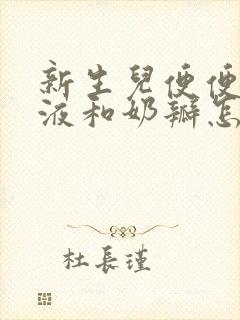 新生兒便便
液和奶瓣怎
杜長瑾